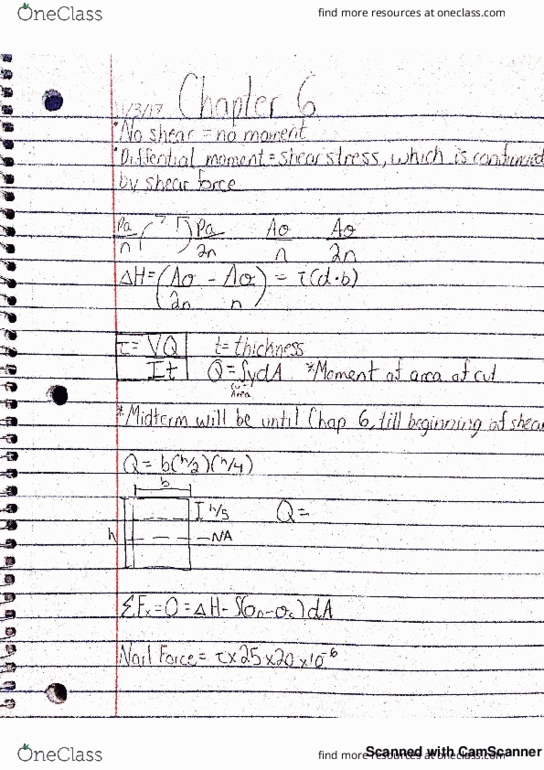 OneClass
find more resources at oneclass.com
1/3/17 Chapter 6
*No shear = no moment
*Differential moment = shear stress, which is
by shear force
Pa/n Pa/2n Aσ/n Aσ/2n
ΔH = (Aσ/2n - Aσ/n) = τ(d·b)
τ = VQ/It t = thickness
Q = ∫ydA *Moment of area of cut
Area
*Midterm will be until Chap 6, till beginning of shear
Q = b(h/2)(h/4)
b
h/5 Q =
h NA
ΣFx = 0 = ΔH - ∫(σD - σC)dA
Nail Force = τ x 25 x 20 x 10^-6
OneClass
find more resources at oneclass.com
Scanned with CamScanner